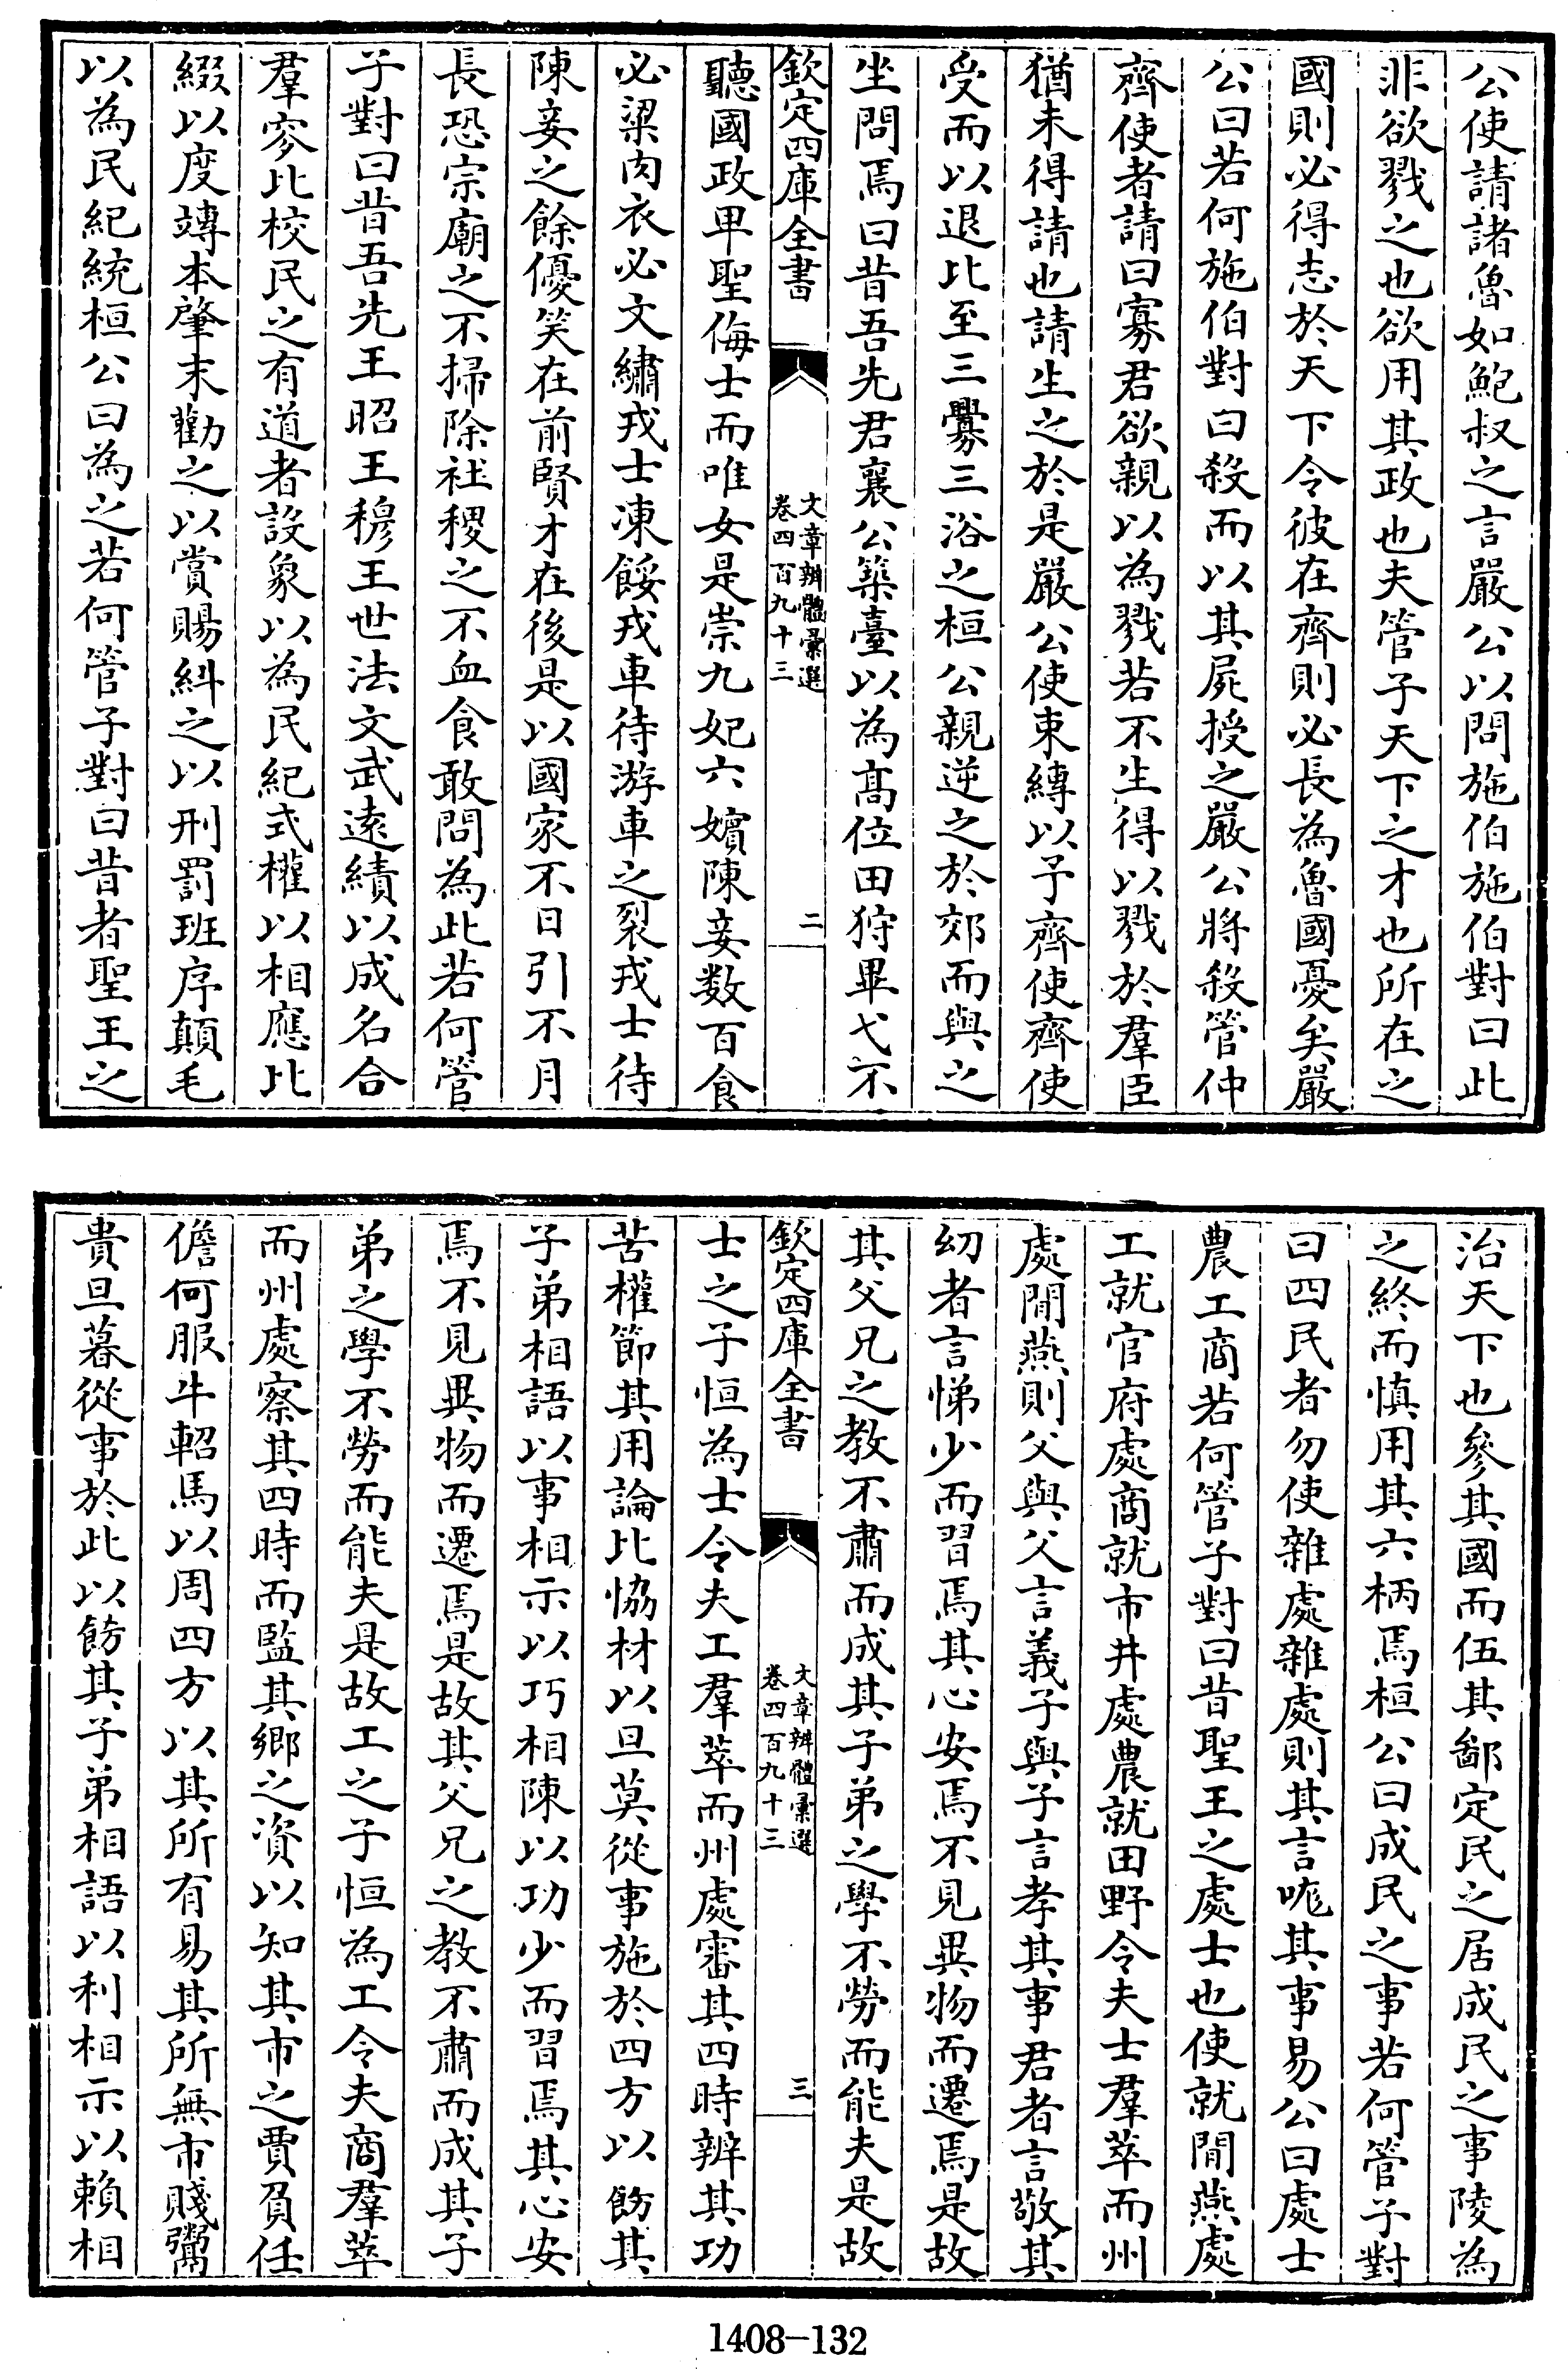 公使請諸魯如鮑叔之言嚴公以問施伯施伯對曰此
非欲戮之也欲用其政也夫管子天下之才也所在之
國則必得志於天下令彼在齊則必長為魯國憂矣嚴
公曰若何施伯對曰殺而以其屍授之嚴公將殺管仲
齊使者請曰寡君欲親以為戮若不生得以戮於羣臣
猶未得請也請生之於是嚴公使束縛以予齊使齊使
受而以退比至三釁三浴之桓公親逆之於郊而與之
坐問焉曰昔吾先君襄公築臺以為髙位田狩畢弋不
欽定四庫全書
文章辨體彙選
卷四百九十三
二
聽國政卑聖侮士而唯女是崇九妃六嬪陳妾数百食
必粱肉衣必文繡戎士凍餒戎車待游車之裂戎士待
陳妾之餘優笑在前賢才在後是以國家不日引不月
長恐宗廟之不掃除社稷之不血食敢問為此若何管
子對曰昔吾先王昭王穆王世法文武遠績以成名合
羣寥比校民之有道者設象以為民紀式權以相應比
綴以度竱本肇末勸之以賞賜糾之以刑罰班序顛毛
以為民紀統桓公曰為之若何管子對曰昔者聖王之
治天下也參其國而伍其鄙定民之居成民之事陵為
之終而慎用其六柄焉桓公曰成民之事若何管子對
曰四民者勿使雜處雜處則其言哤其事易公曰處士
農工商若何管子對曰昔聖王之處士也使就閒燕處
工就官府處商就市井處農就田野令夫士羣萃而州
處閒燕則父與父言義子與子言孝其事君者言敬其
幼者言悌少而習焉其心安焉不見異物而遷焉是故
其父兄之教不肅而成其子弟之學不勞而能夫是故
欽定四庫全書
文章辨體彙選
卷四百九十三
三
士之子恒為士令夫工羣萃而州處審其四時辨其功
苦權節其用論比恊材以旦莫從事施於四方以飭其
子弟相語以事相示以巧相陳以功少而習焉其心安
焉不見異物而遷焉是故其父兄之教不肅而成其子
弟之學不勞而能夫是故工之子恒為工令夫商羣萃
而州處察其四時而監其鄉之資以知其市之賈負任
儋何服牛軺馬以周四方以其所有易其所無市賤鬻
貴旦暮從事於此以飭其子弟相語以利相示以賴相
1408-132